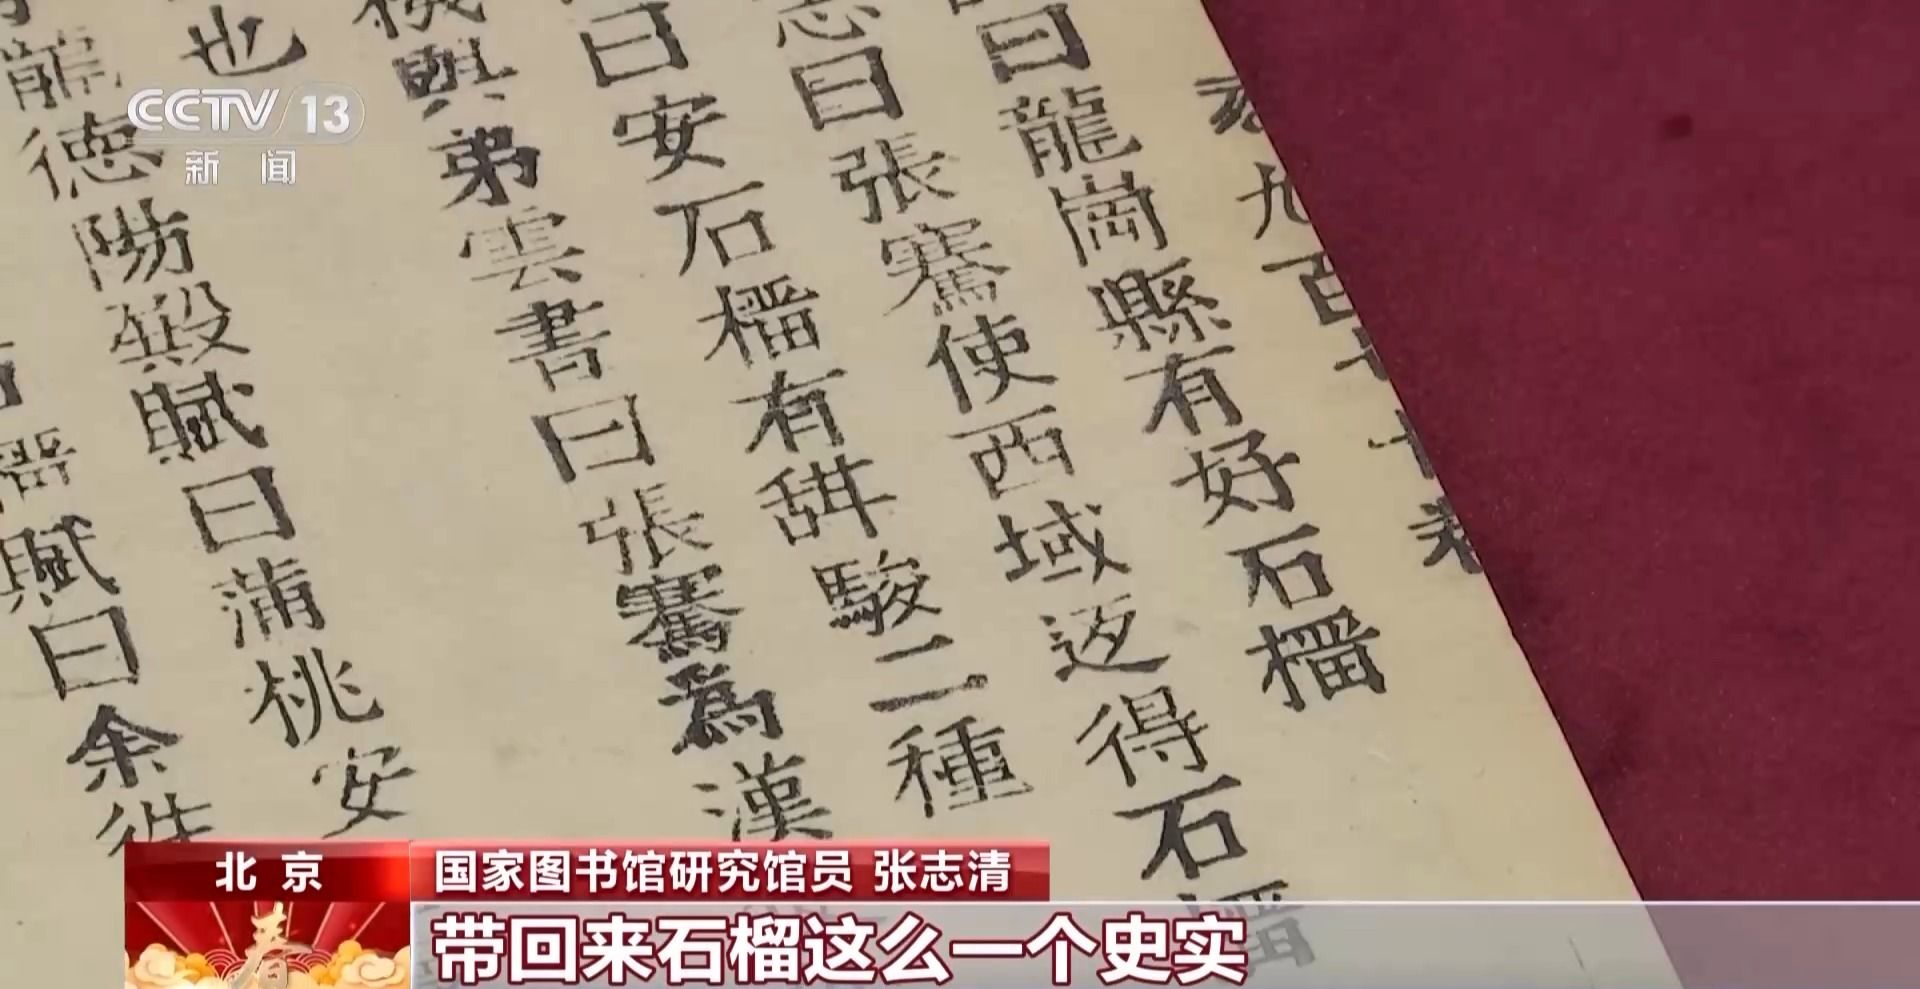 CCTV 13
新闻
九百七十
曰龍崗縣有好石榴
志曰張騫使西域返得石榴
曰安石榴有甜酸二種
機與弟雲書曰張騫為漢
也
龍德陽殿賦曰蒲桃安
榴賦曰余
北京
国家图书馆研究馆员 张志清
春
带回来石榴这么一个史实